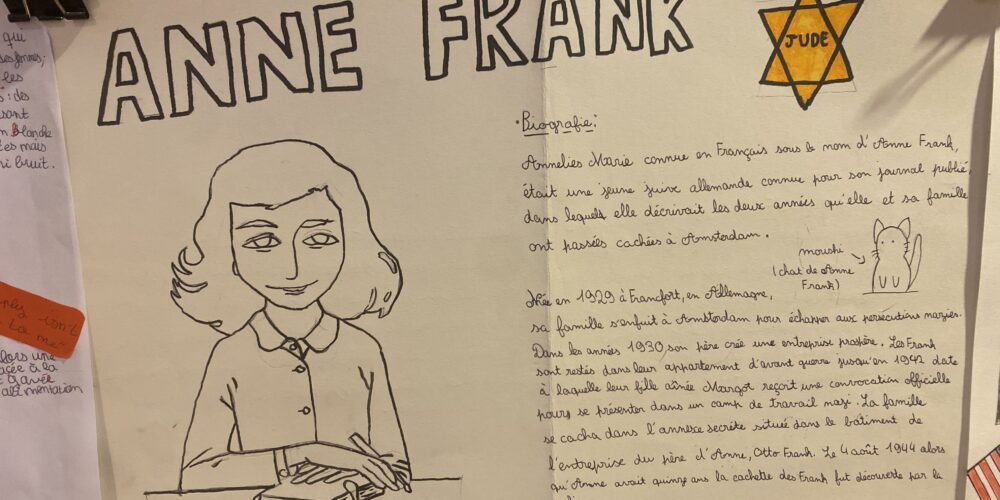 qui
les
des
blanche
mais
bruit.
ANNE FRANK
JUDE
• Biografie:
Annelies Marie connue en Français sous le nom d'Anne Frank,
était une jeune juive allemande connue pour son journal publié,
dans lequels elle décrivait les deux années qu'elle et sa famille
ont passés cachées à Amsterdam.
moushi
(chat de Anne
Frank)
Née en 1929 à Francfort, en Allemagne,
sa famille s'enfuit à Amsterdam pour échapper aux persécutions nazies.
Dans les années 1930 son père créé une entreprise prospère. Les Frank
sont restés dans leur appartement d'avant guerre jusqu'en 1942 date
à laquelle leur fille aînée Margot reçoit une convocation officielle
pour se présenter dans un camp de travail nazi. La famille
se cacha dans l'annexe secrète située dans le bâtiment de
l'entreprise du père d'Anne, Otto Frank. Le 4 août 1944 alors
qu'Anne avait quinze ans la cachette des Frank fut découverte par la
isn't
me"
alors une
à la
alimentation